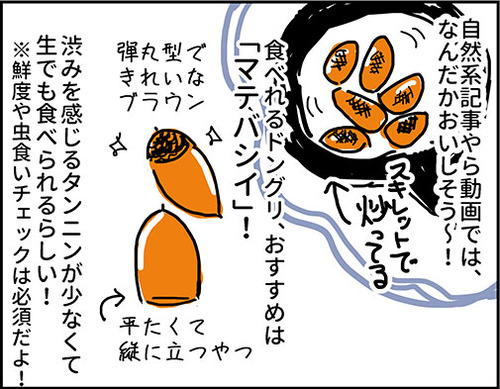 自然系記事やら動画では、
なんだかおいしそう〜！
スキレットで
炒ってる
食べれるドングリ、おすすめは
「マテバシイ」！
弾丸型で
きれいな
ブラウン
平たくて
縦に立つやつ
渋みを感じるタンニンが少なくて
生でも食べられるらしい！
※鮮度や虫食いチェックは必須だよ！